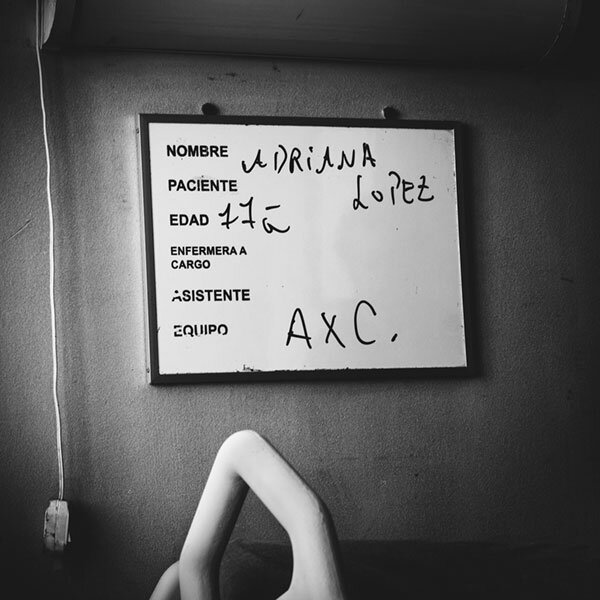 NOMBRE ADRIANA
PACIENTE LOPEZ
EDAD 17 a
ENFERMERA A
CARGO
ASISTENTE
EQUIPO AXC.